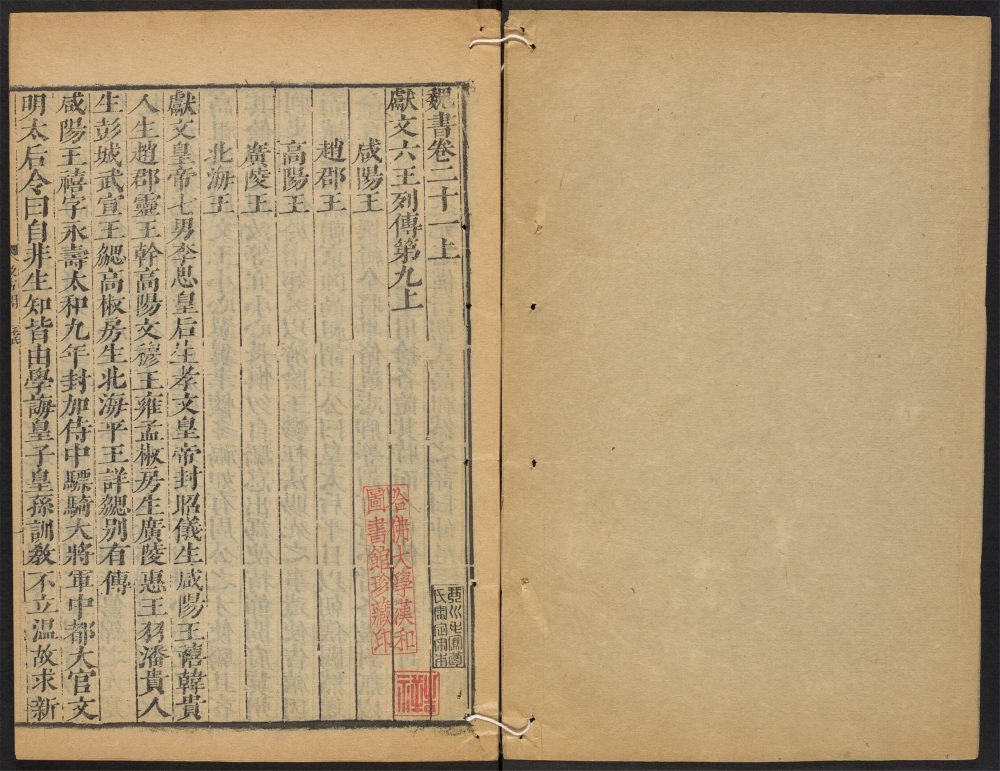 魏書卷二十一上
獻文六王列傳第九上
咸陽王
趙郡王
高陽王
廣陵王
北海王
獻文皇帝七男李思皇后生孝文皇帝封昭儀生咸陽王禧韓貴
人生趙郡靈王幹高陽文穆王雍孟椒房生廣陵惠王羽潘貴人
生彭城武宣王勰高椒房生北海平王詳勰别有傳
咸陽王禧字永壽太和九年封加侍中驃騎大將軍中都大官文
明太后令曰自非生知皆由學誨皇子皇孫訓教不立温故求新
哈佛大學漢和
圖書館珍藏印